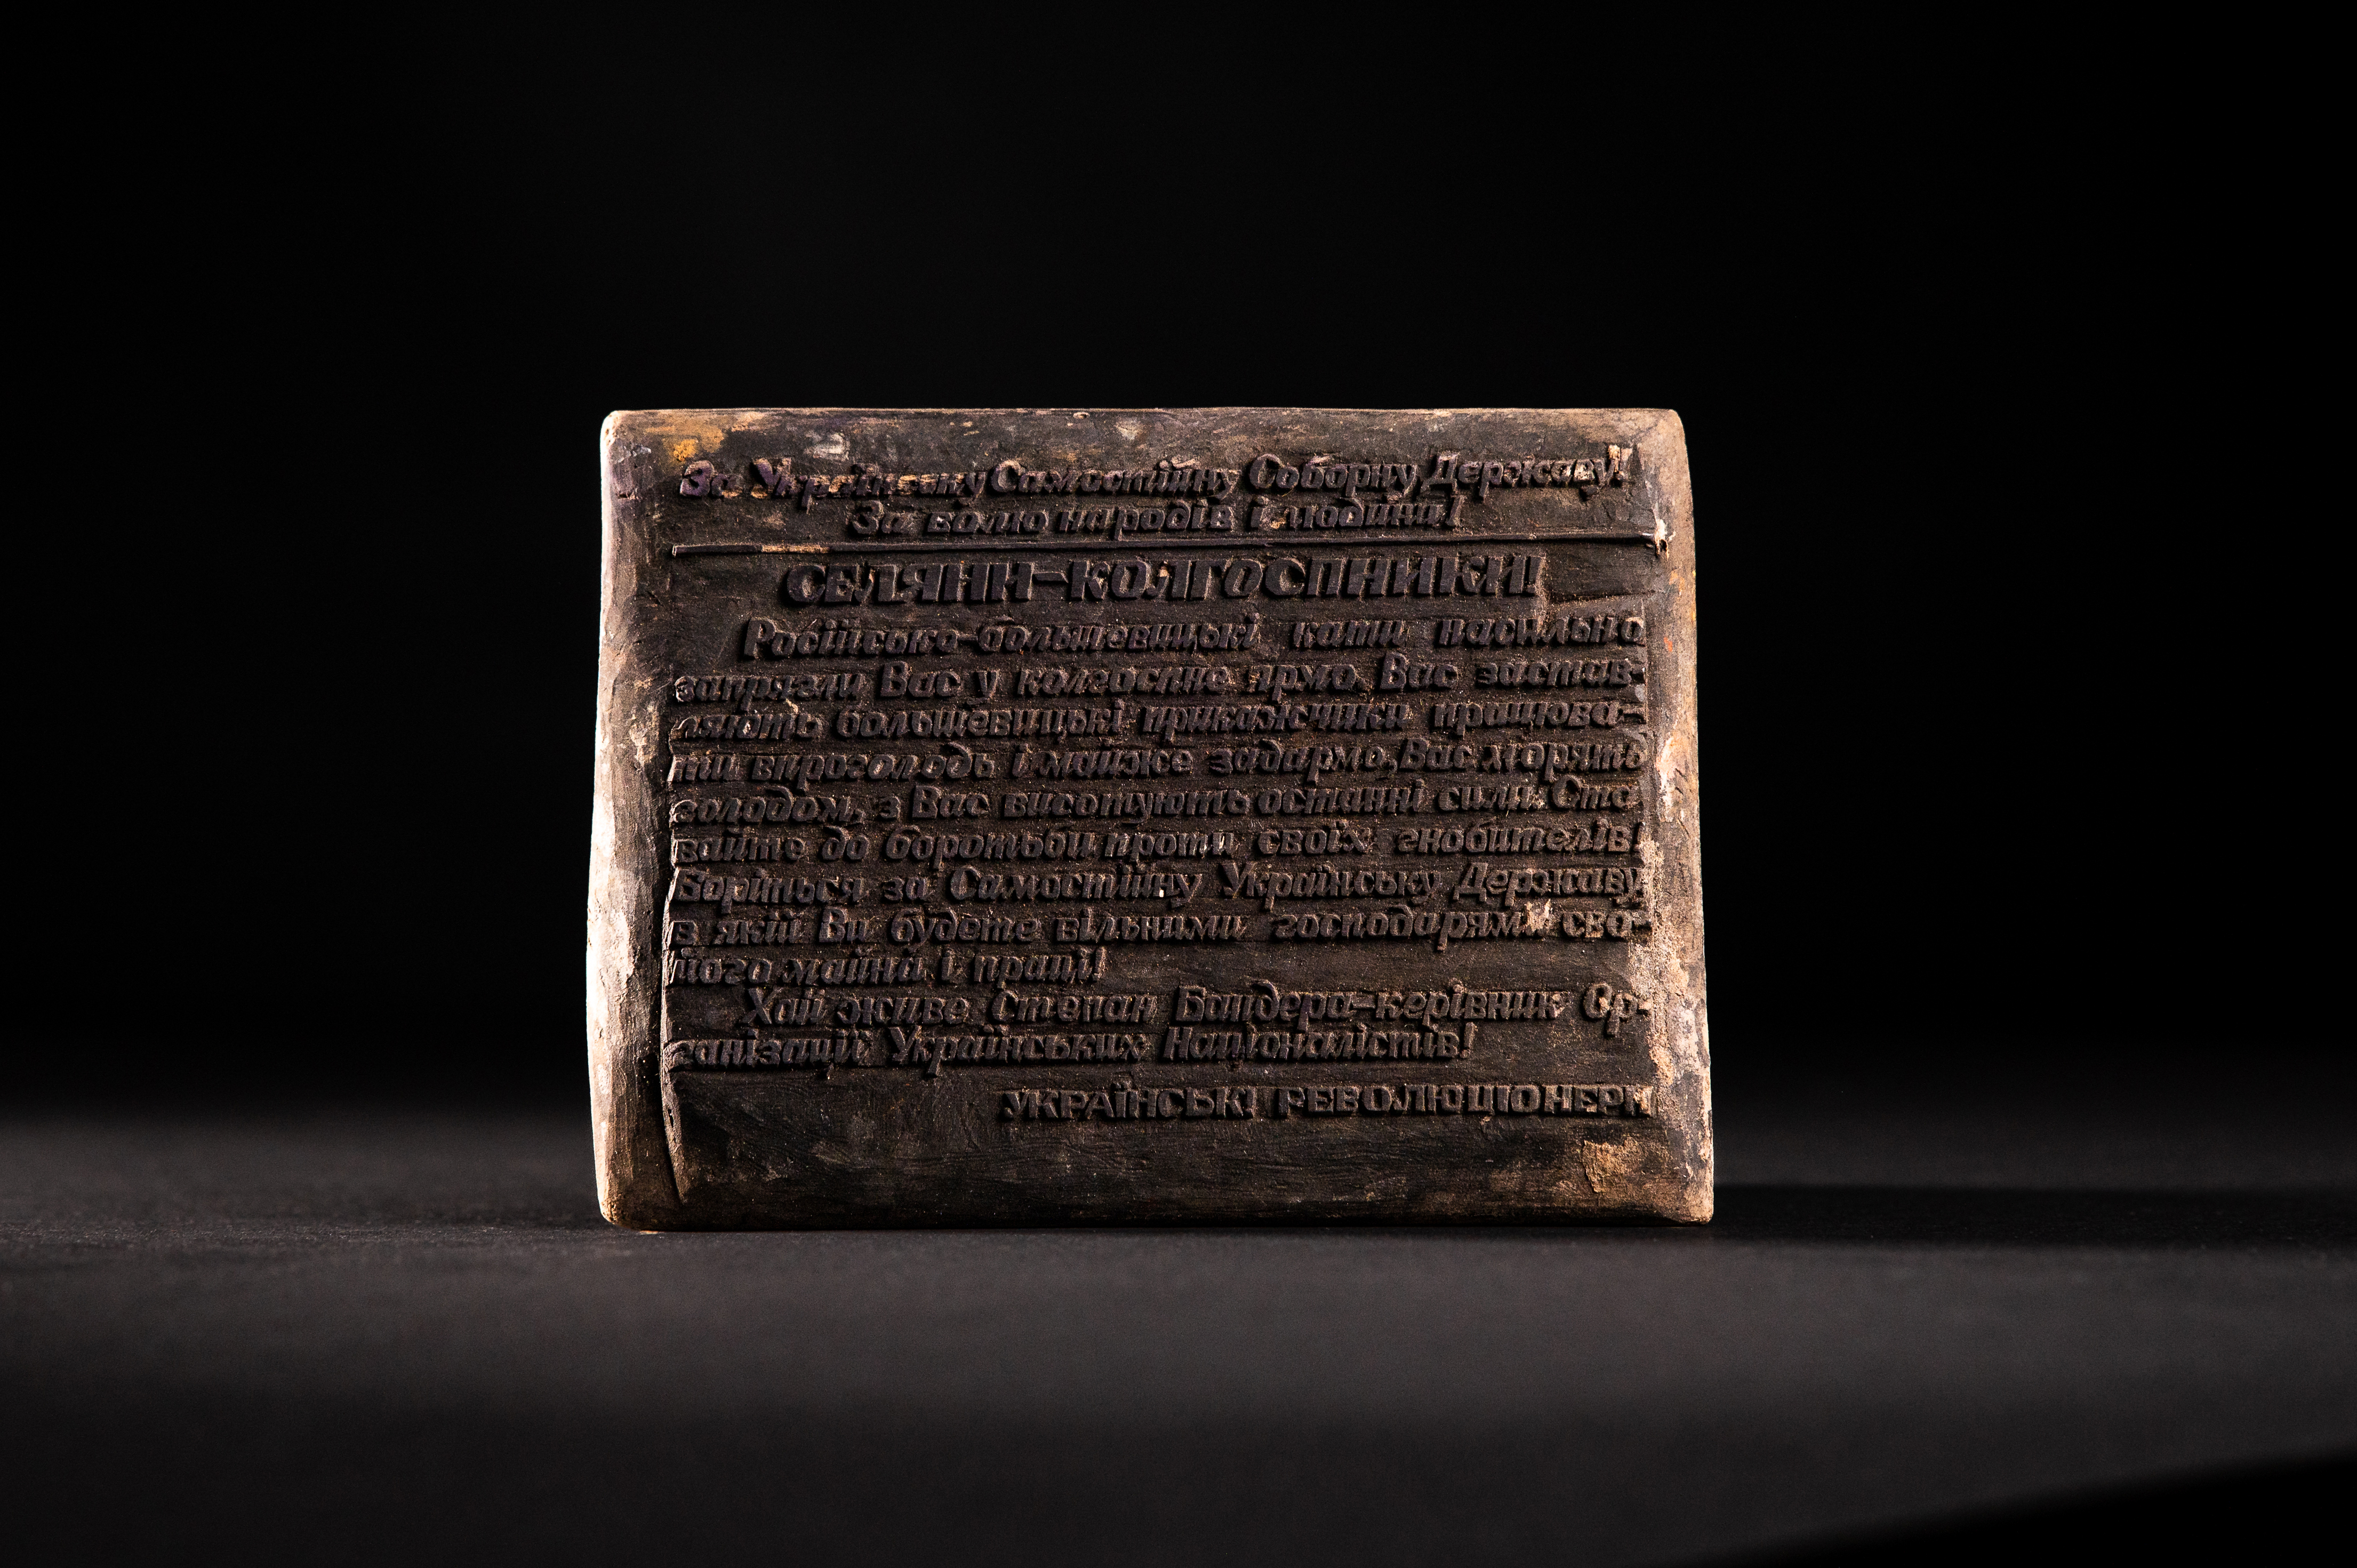 За Українську Самостійну Соборну Державу!
За волю народів і людини!
СЕЛЯНИ-КОЛГОСПНИКИ!
Російсько-большевицькі кати насильно
запрягли Вас у колгоспне ярмо. Вас застав-
ляють большевицькі прикажчики працюва-
ти впроголодь і майже задармо, Вас морять
голодом, з Вас висотують останні сили. Ста-
вайте до боротьби проти своїх гнобителів!
Боріться за Самостійну Українську Державу,
в якій Ви будете вільними господарями сво-
його майна і праці!
Хай живе Степан Бандера-керівник Ор-
ганізації Українських Націоналістів!
УКРАЇНСЬКІ РЕВОЛЮЦІОНЕРИ